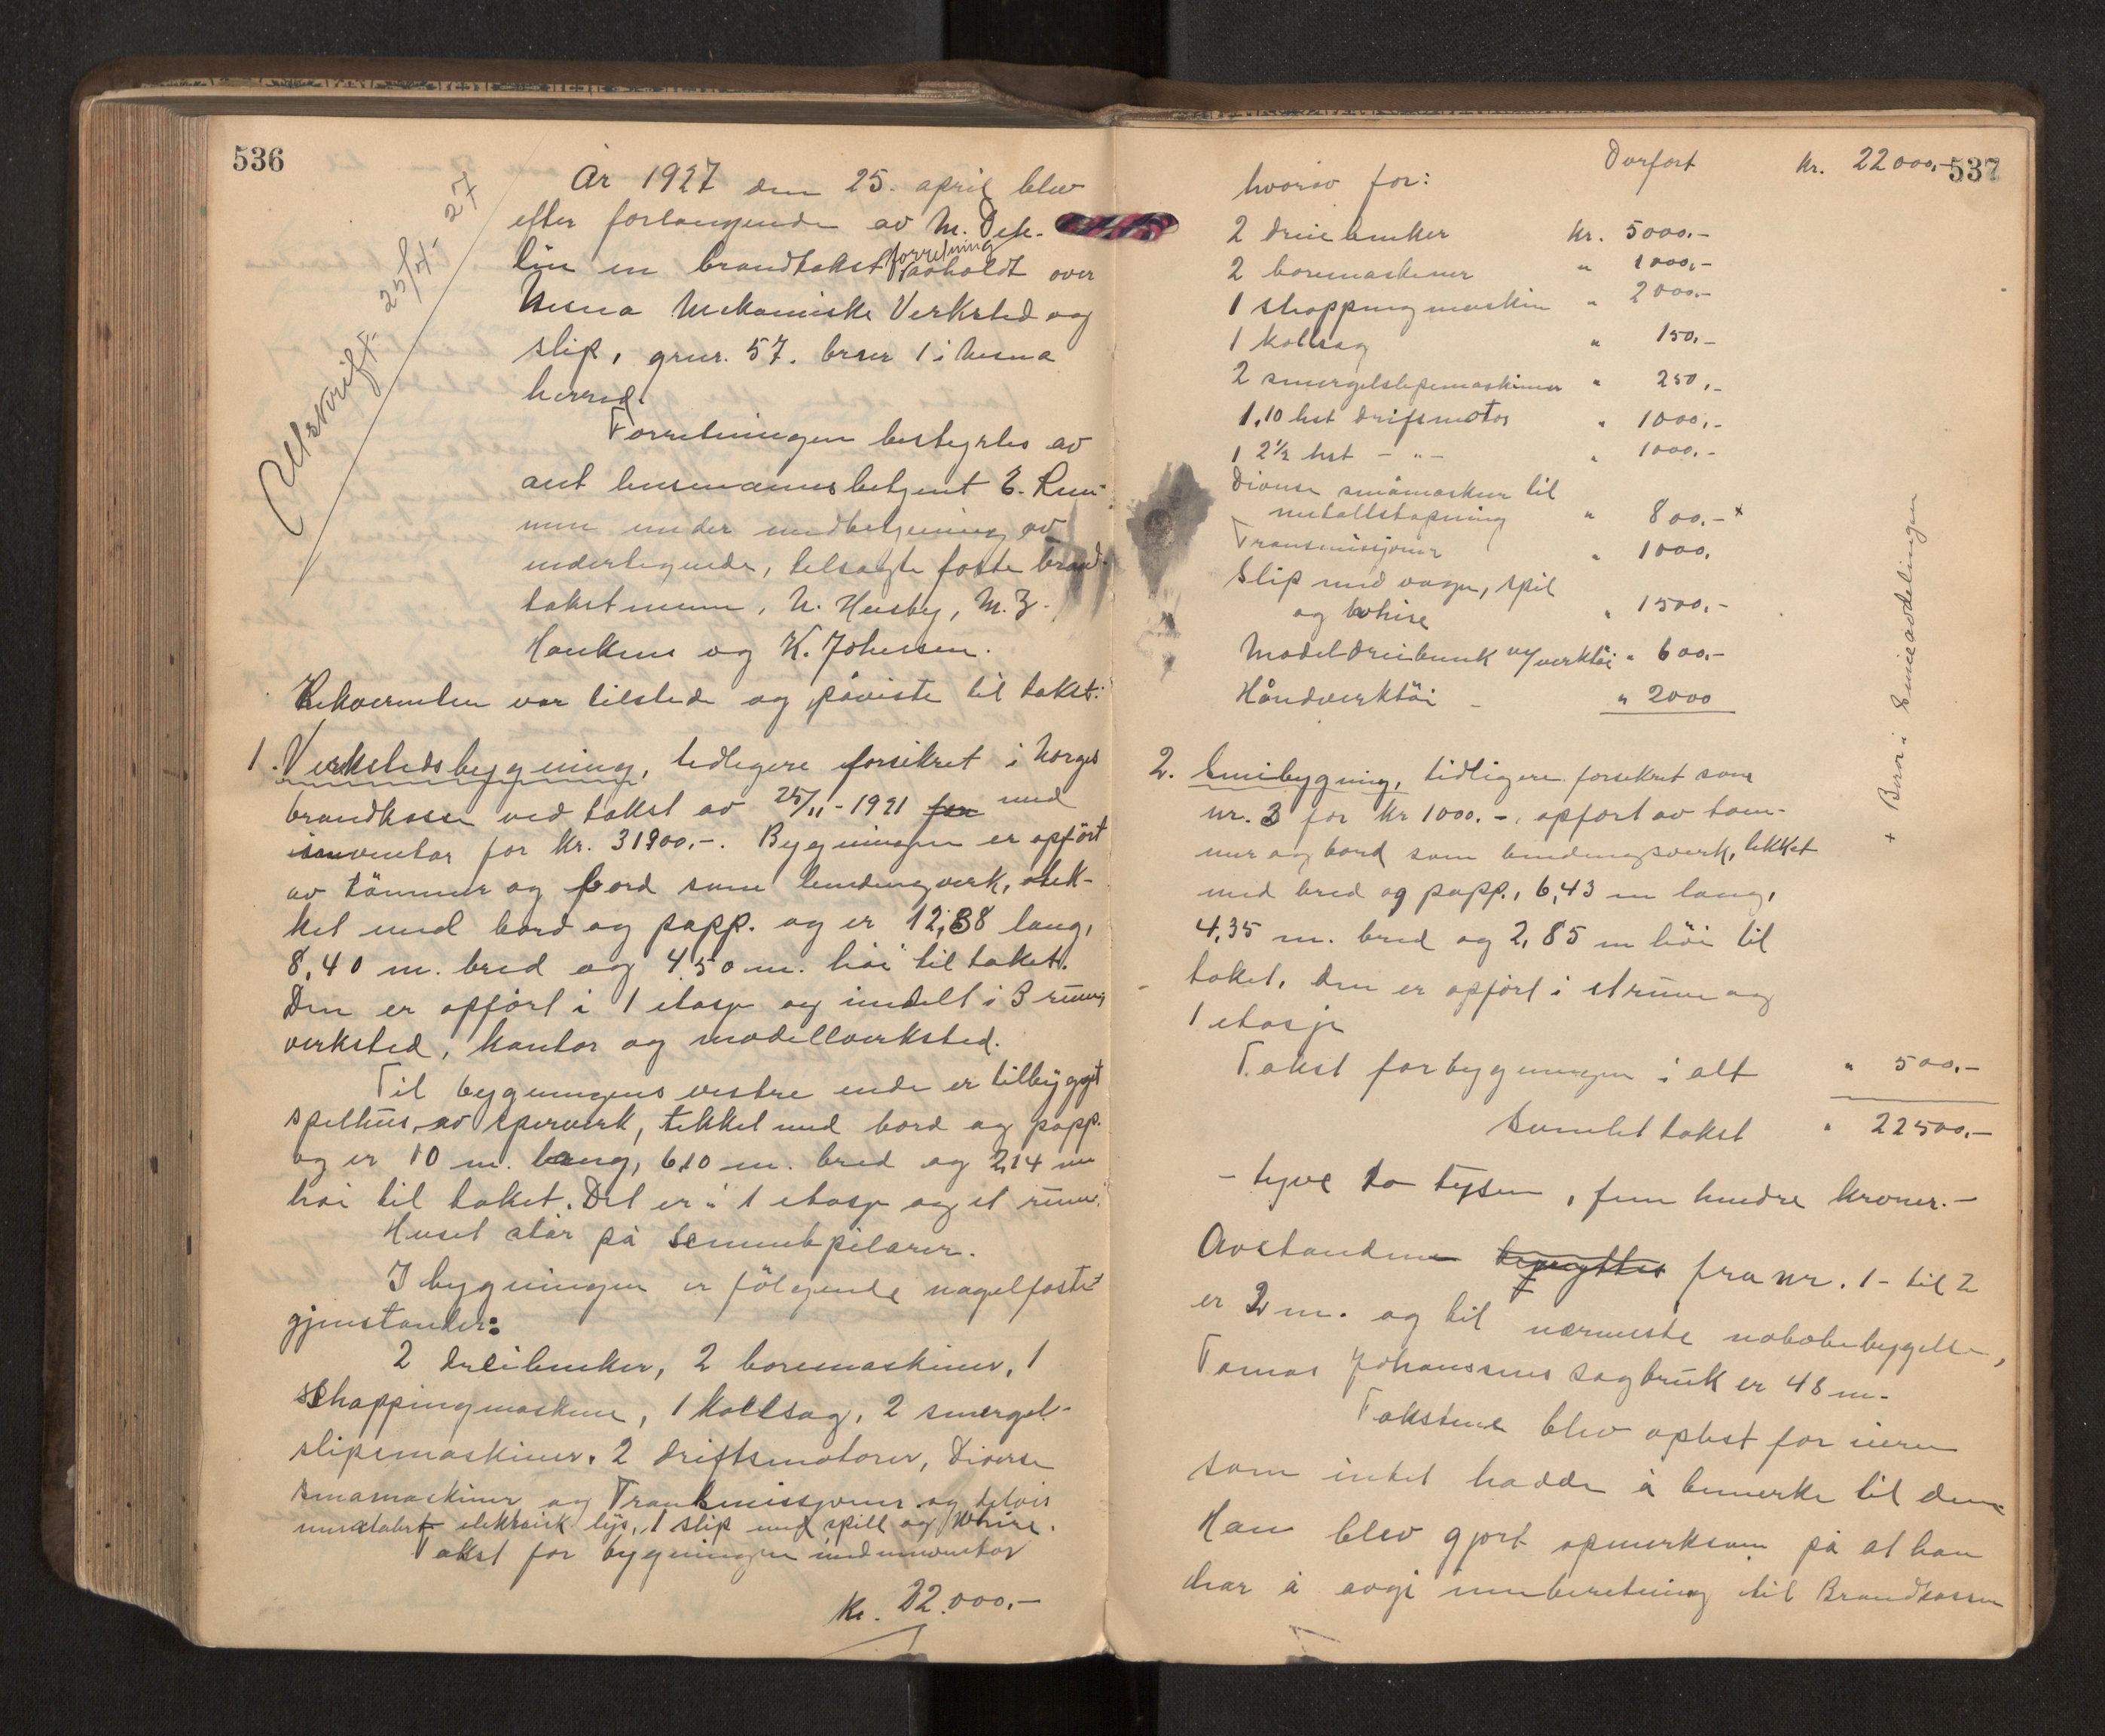 536
Utskrift 25/4-27
År 1927 den 25. april blev
efter forlangende av M. Det-
lin en brandtakst forretning avholdt over
Nesna Mekaniske Verksted og
slip, gnr. 57. brnr 1 i Nesna
herred.
Forretningen bestyrtes av
aut lensmannsbetjent E.
under medbetjening av
undertegnede, tilsagte faste brand-
takstmenn, N. Husby, M. Z.
Hanksen og K. Johnsen.
Rekvirenten var tilstede og påviste til takst:
1. Verkstedsbygning, tidligere forsikret i Norges
brandkasse ved takst av 25/11-1921 for med
inventar for kr. 31900.-. Bygningen er opført
av tömmer og bord som bindingverk, tek-
ket med bord og papp. og er 12,38 lang,
8,40 m. bred og 4,50 m. höi til taket.
Den er opfört i 1 etasje og inndelt i 3 rum,
verksted, kontor og modellverksted.
Til bygningens vestre ende er tilbygget
spellhus, av sperverk, tekket med bord og papp.
og er 10 m. lang, 6,10 m. bred og 2,14 m
höi til taket. Det er i 1 etasje og et rum.
Huset står på sementpilarer.
I bygningen er fölgende nagelfaste
gjenstander:
2 dreibenker, 2 boremaskiner, 1
schappingmaskine, 1 kallsag, 2 smergel-
slipemaskiner, 2 driftsmotorer, Diverse
småmaskiner og Transmissjoner og delvis
elektrisk lys, 1 slip med spill og Whire.
Takst for bygningen med inventar
kr. 22.000.-
537
Overfört kr. 22000,-
hvorav for:
2 dreiebenker kr. 5000.-
2 boremaskiner " 1000,-
1 shappingmaskin " 2000.-
1 kallsag " 150,-
2 smergelslipemaskiner " 250,-
1,10 hst driftsmotor " 1000,-
1 2½ hst - " - " 1000.-
Diverse småmaskiner til
metallstøpning " 800.- x
Transmissjoner " 1000.
Slip med vogn, spil
og whire " 1500.-
Modeldreibenk m/verktöi " 600.-
Håndverktöi - " 2000
+ Beror i Smieavdelingen
2. Smibygning, tidligere forsikret som
nr. 3 for kr 1000.-, opfort av töm-
mer og bord som bindingsverk, tekket
med bred og papp., 6,43 m lang,
4,35 m. bred og 2,85 m höi til
taket, den er opfört i et rum og
1 etasje
Takst for bygningen i alt " 500.-
Samlet takst " 22500.-
- tyve to tusen, fem hundre kroner.-
Avstandene fra nr. 1- til 2
er 2 m. og til nærmeste nabobebyggelse,
Tomas Johanssens sagbruk er 48 m.
Taksten blev oplest for eieren
som intet hadde å bemerke til den
Han blev gjort opmerksom på at han
har å avgi innberetning til Brandkassen